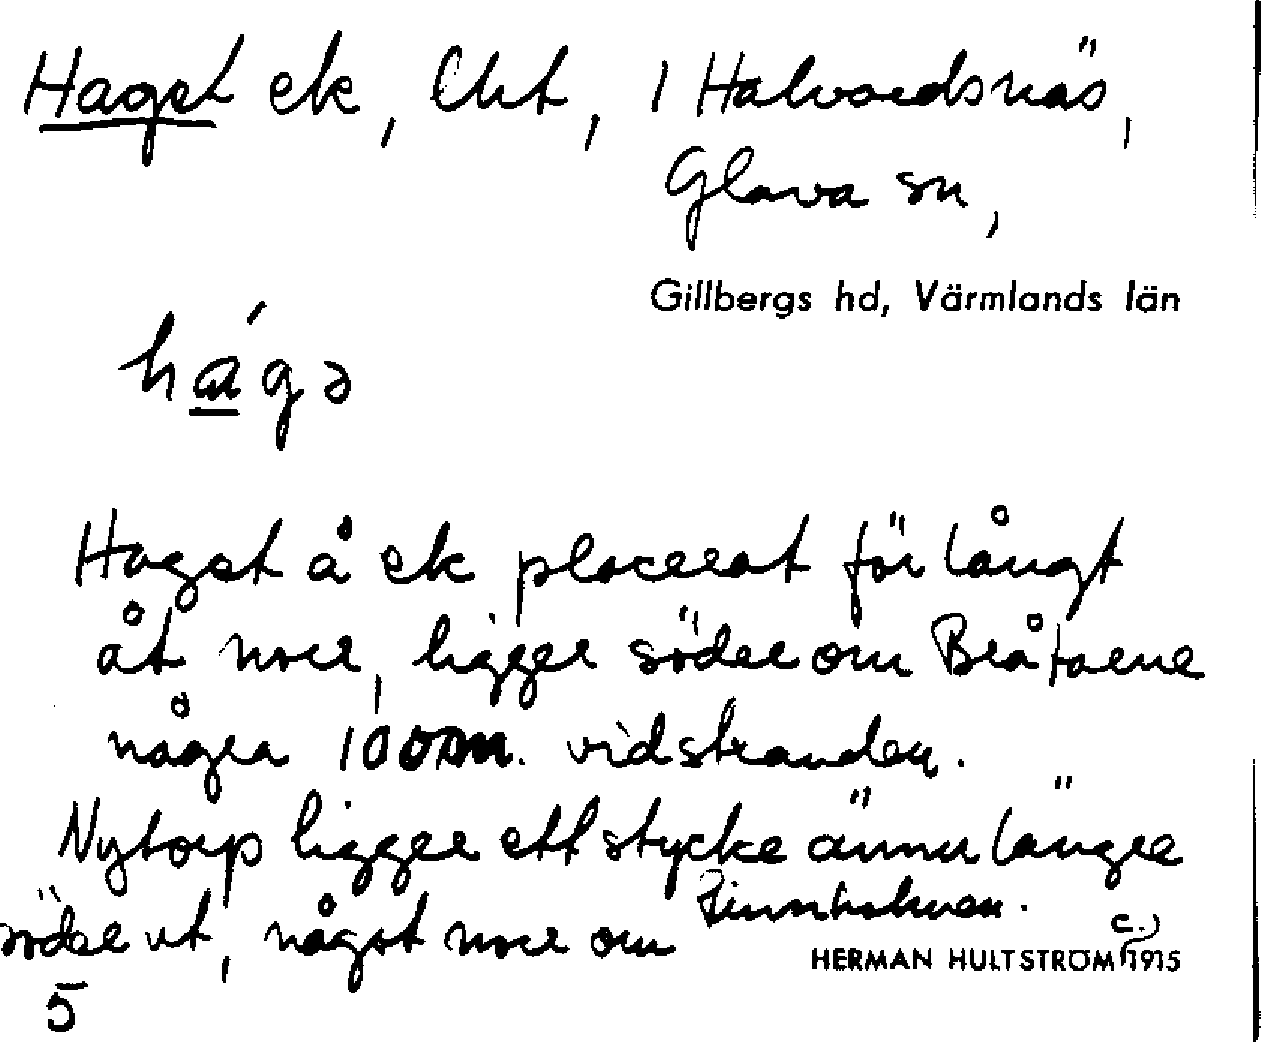 Haget ek, lht, 1 Halvardsnäs,
Glava sn,
Gillbergs hd, Värmlands län
hágə
Haget å ek placerat för långt
åt norr, ligger söder om Bråtarne
några 100 m. vid stranden.
Nytorp ligger ett stycke ännu längre
söder ut, något norr om
HERMAN HULTSTRÖM C. 1915
5